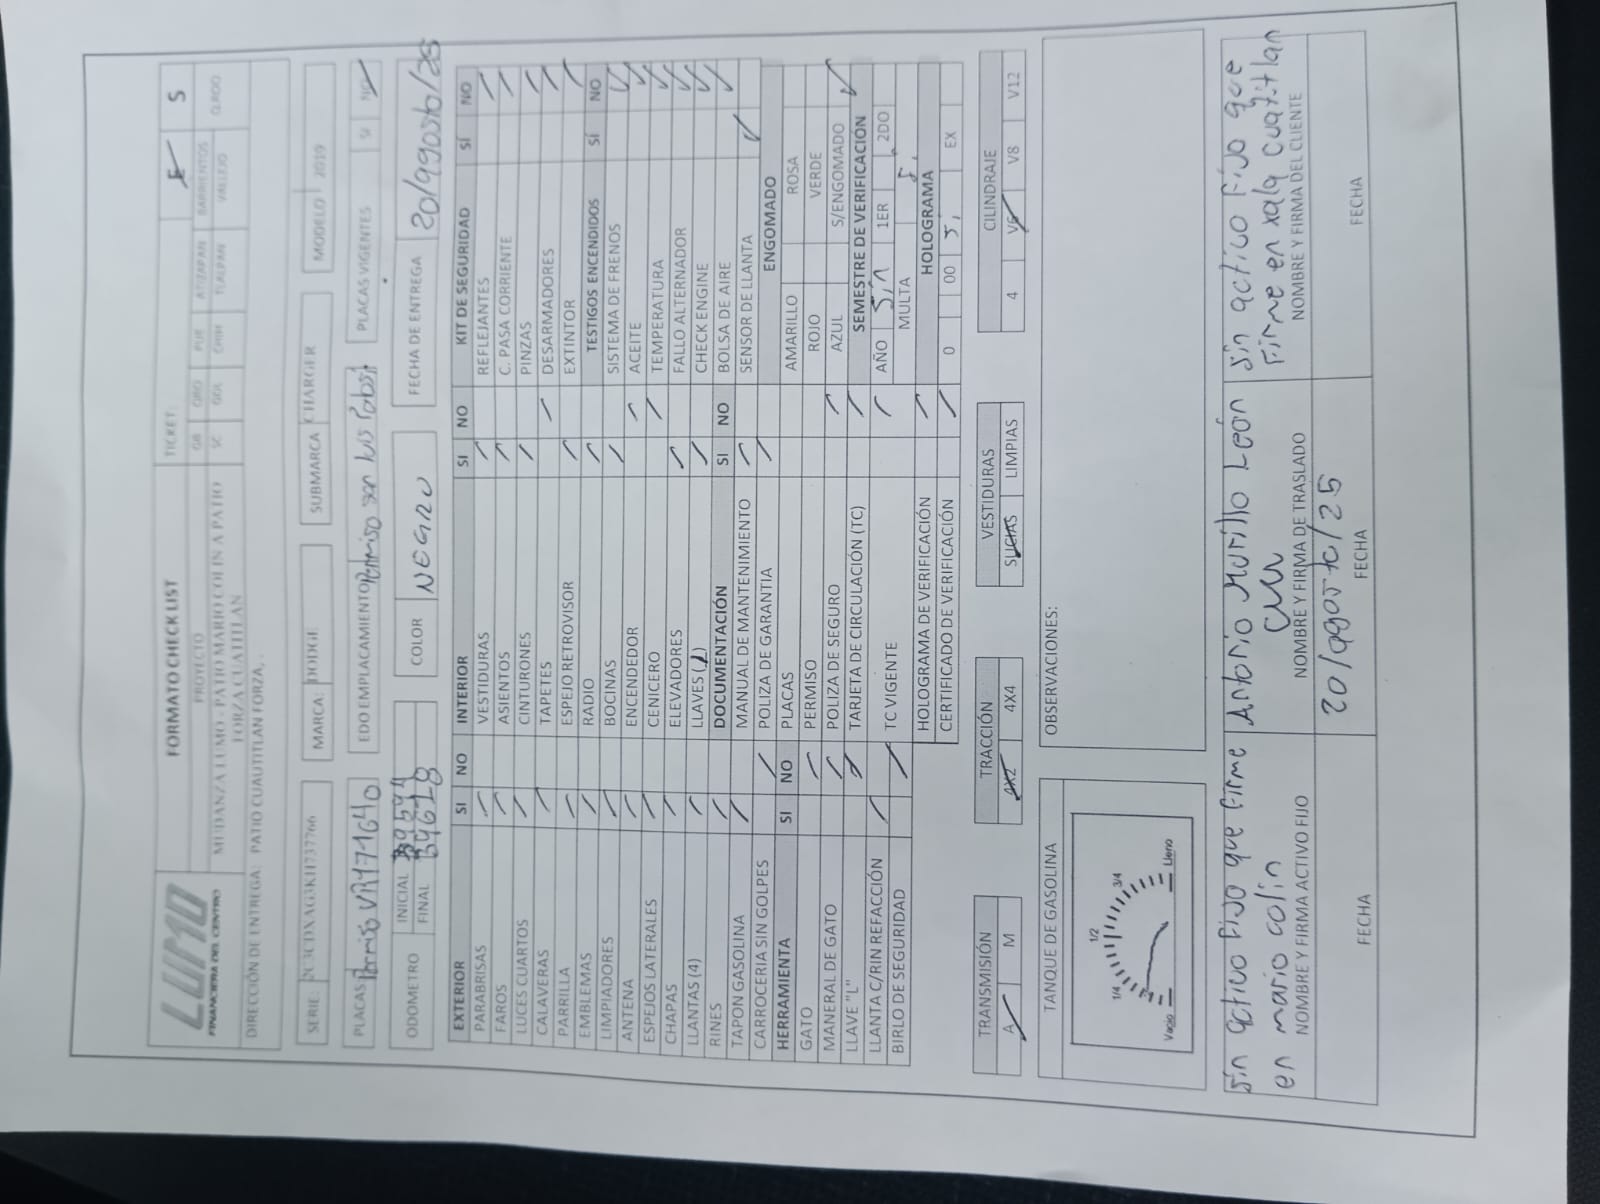 LUMO
FINANCIERA DEL CENTRO
FORMATO CHECK LIST
TICKET:
E S
PROYECTO
MUDANZA LUMO - PATIO MARIO COLIN A PATIO FORZA CUATITLAN
GB QRO PUE ATIZAPAN BARRIENTOS
GDL CHIH TLALPAN VALLEJO
DIRECCIÓN DE ENTREGA: PATIO CUAUTITLAN FORZA, .
SERIE: 2C3CDXAG3KH737766
MARCA: DODGE
SUBMARCA CHARGER
MODELO 2019
PLACAS Permiso
EDO EMPLACAMIENTO Permiso san luis Potosi
PLACAS VIGENTES SI NO
ODOMETRO INICIAL
FINAL
COLOR NEGRO
FECHA DE ENTREGA 20/agosto/25
EXTERIOR SI NO
PARABRISAS
FAROS
LUCES CUARTOS
CALAVERAS
PARRILLA
EMBLEMAS
LIMPIADORES
ANTENA
ESPEJOS LATERALES
CHAPAS
LLANTAS (4)
RINES
TAPON GASOLINA
CARROCERIA SIN GOLPES
HERRAMIENTA SI NO
GATO
MANERAL DE GATO
LLAVE "L"
LLANTA C/RIN REFACCIÓN
BIRLO DE SEGURIDAD
INTERIOR SI NO
VESTIDURAS
ASIENTOS
CINTURONES
TAPETES
ESPEJO RETROVISOR
RADIO
BOCINAS
ENCENDEDOR
CENICERO
ELEVADORES
LLAVES (1)
DOCUMENTACIÓN SI NO
MANUAL DE MANTENIMIENTO
POLIZA DE GARANTIA
PLACAS
PERMISO
POLIZA DE SEGURO
TARJETA DE CIRCULACIÓN (TC)
TC VIGENTE
HOLOGRAMA DE VERIFICACIÓN
CERTIFICADO DE VERIFICACIÓN
KIT DE SEGURIDAD SÍ NO
REFLEJANTES
C. PASA CORRIENTE
PINZAS
DESARMADORES
EXTINTOR
TESTIGOS ENCENDIDOS SÍ NO
SISTEMA DE FRENOS
ACEITE
TEMPERATURA
FALLO ALTERNADOR
CHECK ENGINE
BOLSA DE AIRE
SENSOR DE LLANTA
ENGOMADO
AMARILLO ROSA
ROJO VERDE
AZUL S/ENGOMADO
SEMESTRE DE VERIFICACIÓN
AÑO Sin 1ER 2DO
MULTA
HOLOGRAMA
0 00 EX
TRANSMISIÓN
A M
TRACCIÓN
4X2 4X4
VESTIDURAS
SUCIAS LIMPIAS
CILINDRAJE
4 V6 V8 V12
TANQUE DE GASOLINA
Vacio 1/4 1/2 3/4 Lleno
OBSERVACIONES:
Sin activo Fijo que firme
en mario colin
NOMBRE Y FIRMA ACTIVO FIJO
FECHA
Antonio Murillo León
NOMBRE Y FIRMA DE TRASLADO
20/agosto/25
FECHA
Sin activo Fijo que
Firme en xala cuatitlan
NOMBRE Y FIRMA DEL CLIENTE
FECHA